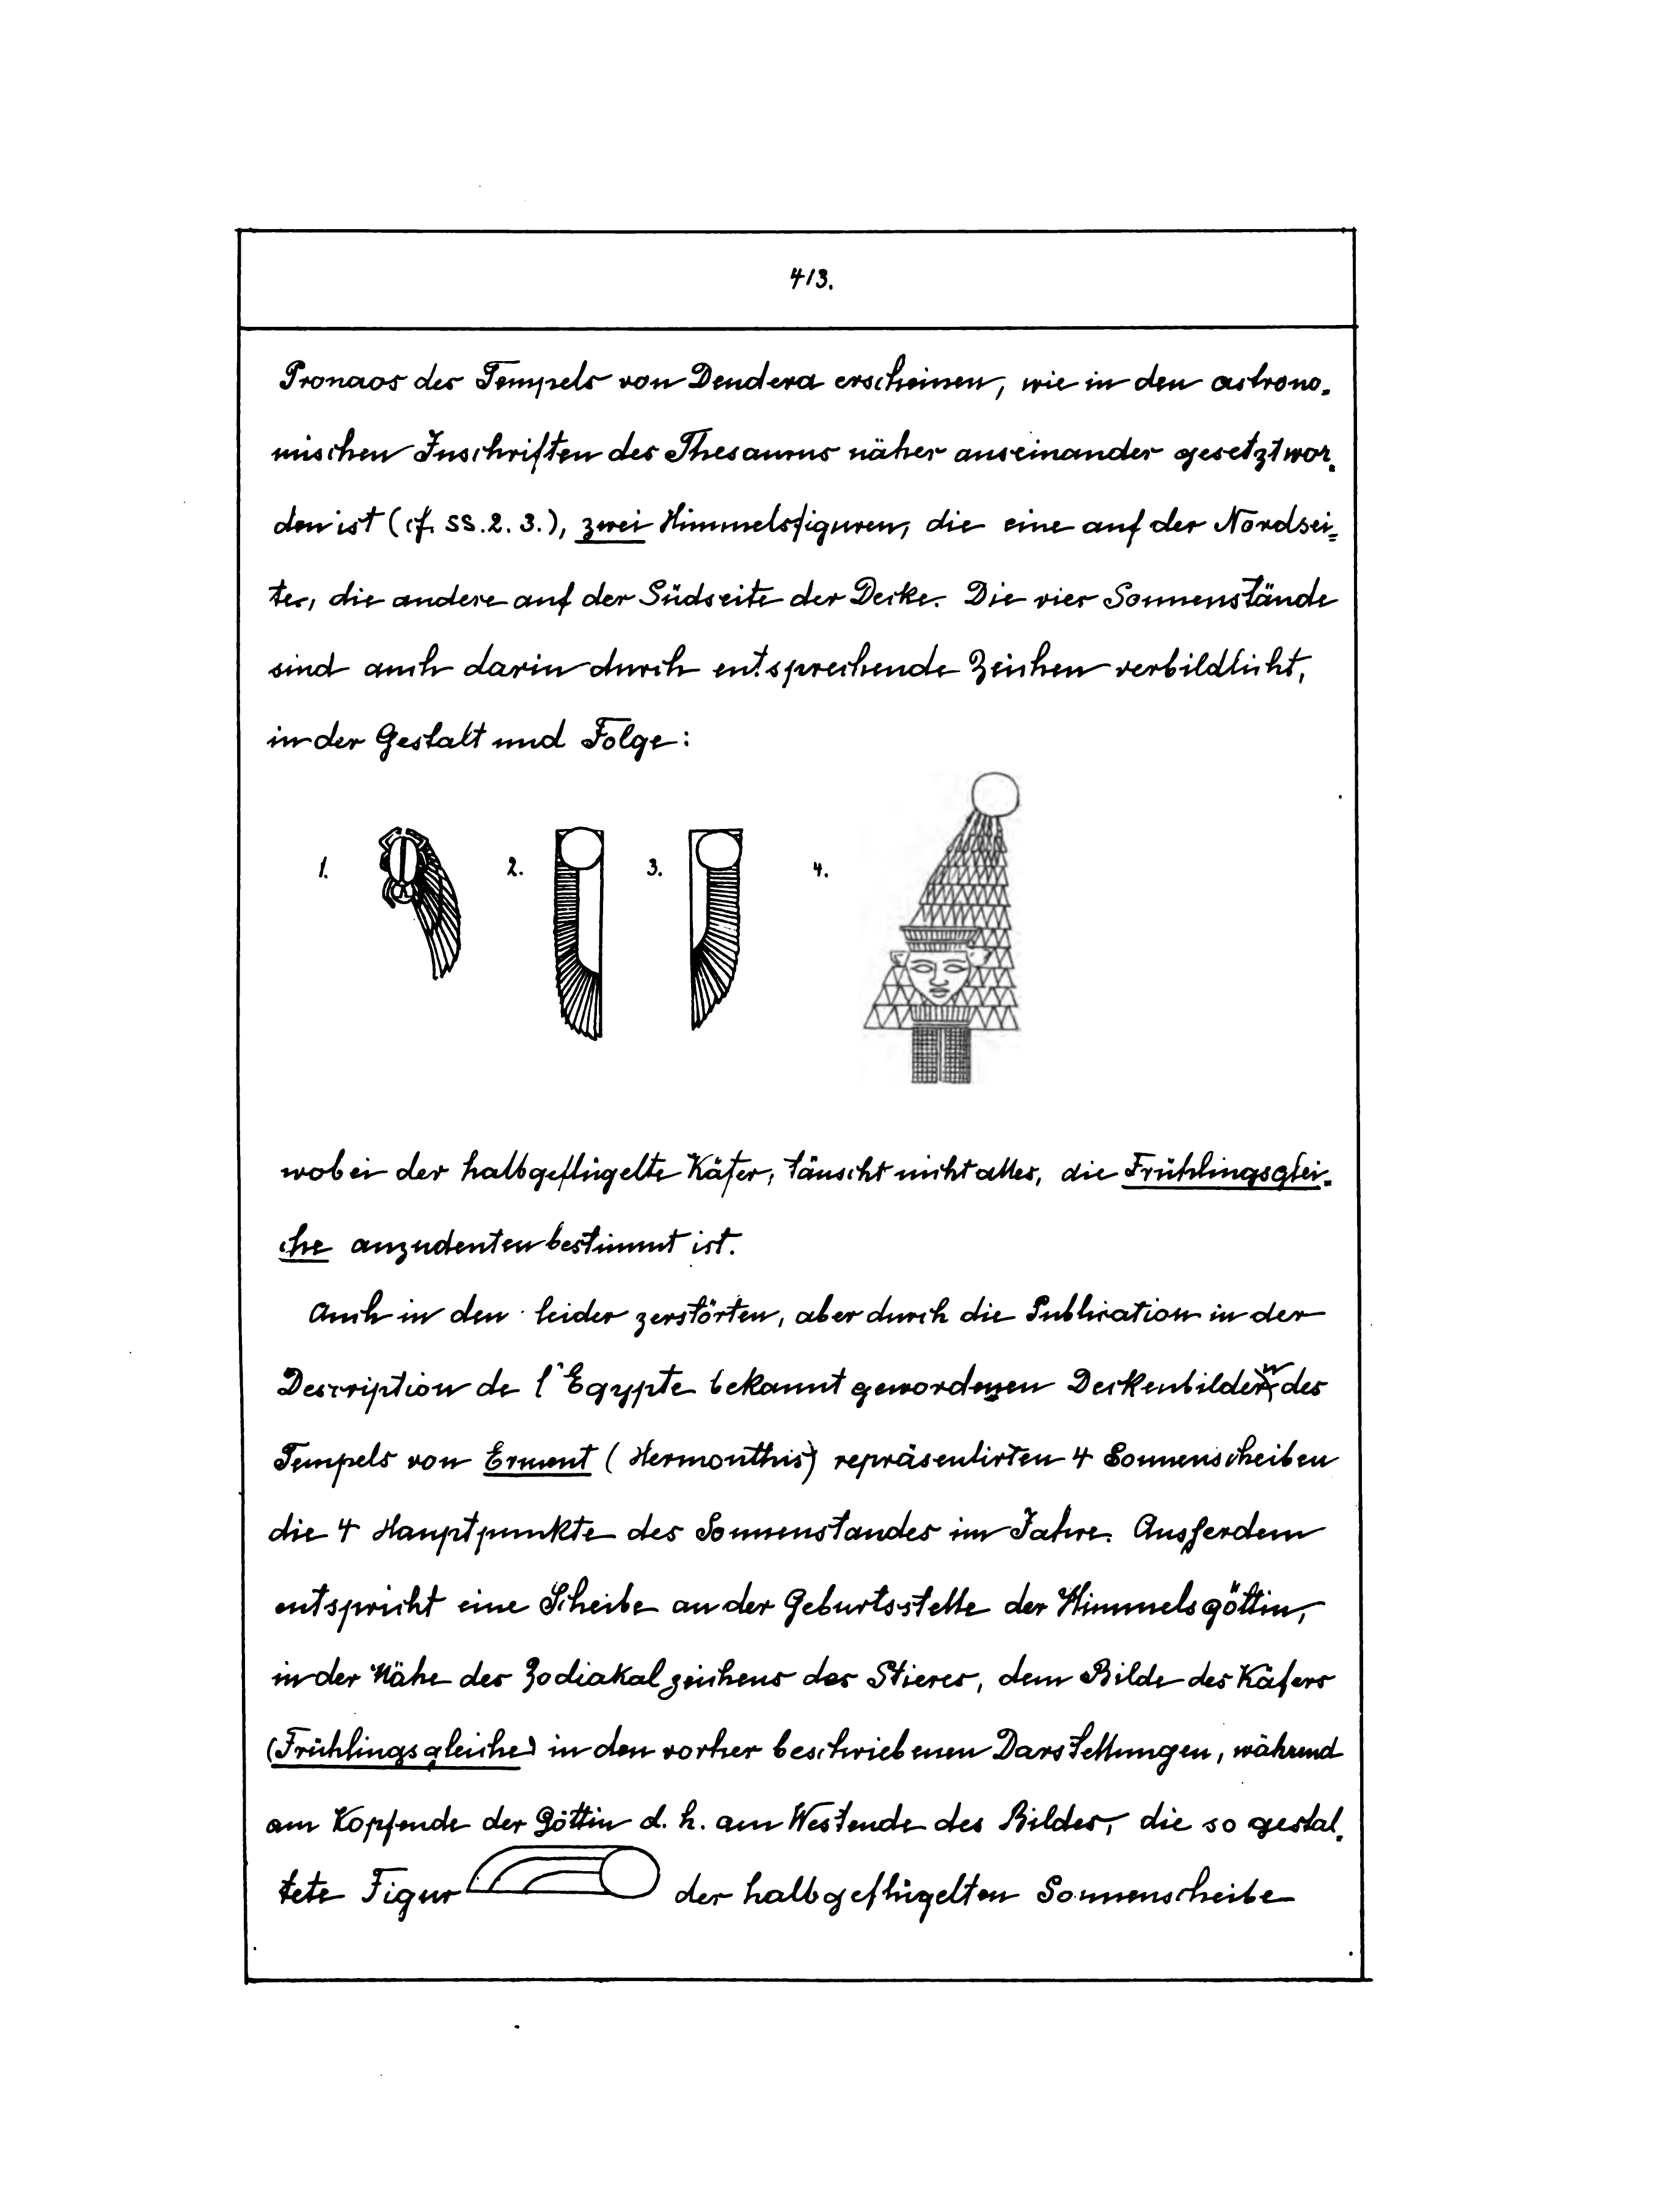 413.
Pronaos des Tempels von Dendera erscheinen, wie in den astrono-
mischen Inschriften des Thesaurus näher auseinander gesetzt wor-
den ist (cf. SS. 2. 3.), zwei Himmelsfiguren, die eine auf der Nordsei=
te, die andere auf der Südseite der Decke. Die vier Sonnenstände
sind auch darin durch entsprechende Zeichen verbildlicht,
in der Gestalt und Folge:
1. 2. 3. 4.
wobei der halbgeflügelte Käfer, täuscht nicht alles, die Frühlingsglei-
che anzudeuten bestimmt ist.
Auch in den leider zerstörten, aber durch die Publication in der
Description de l'Egypte bekannt gewordenen Deckenbildern des
Tempels von Erment (Hermonthis) repräsentirten 4 Sonnenscheiben
die 4 Hauptpunkte des Sonnenstandes im Jahre. Ausserdem
entspricht eine Scheibe an der Geburtsstelle der Himmelsgöttin,
in der Nähe des Zodiakalzeichens des Stieres, dem Bilde des Käfers
(Frühlingsgleiche) in den vorher beschriebenen Darstellungen, während
am Kopfende der Göttin d. h. am Westende des Bildes, die so gestal-
tete Figur der halbgeflügelten Sonnenscheibe